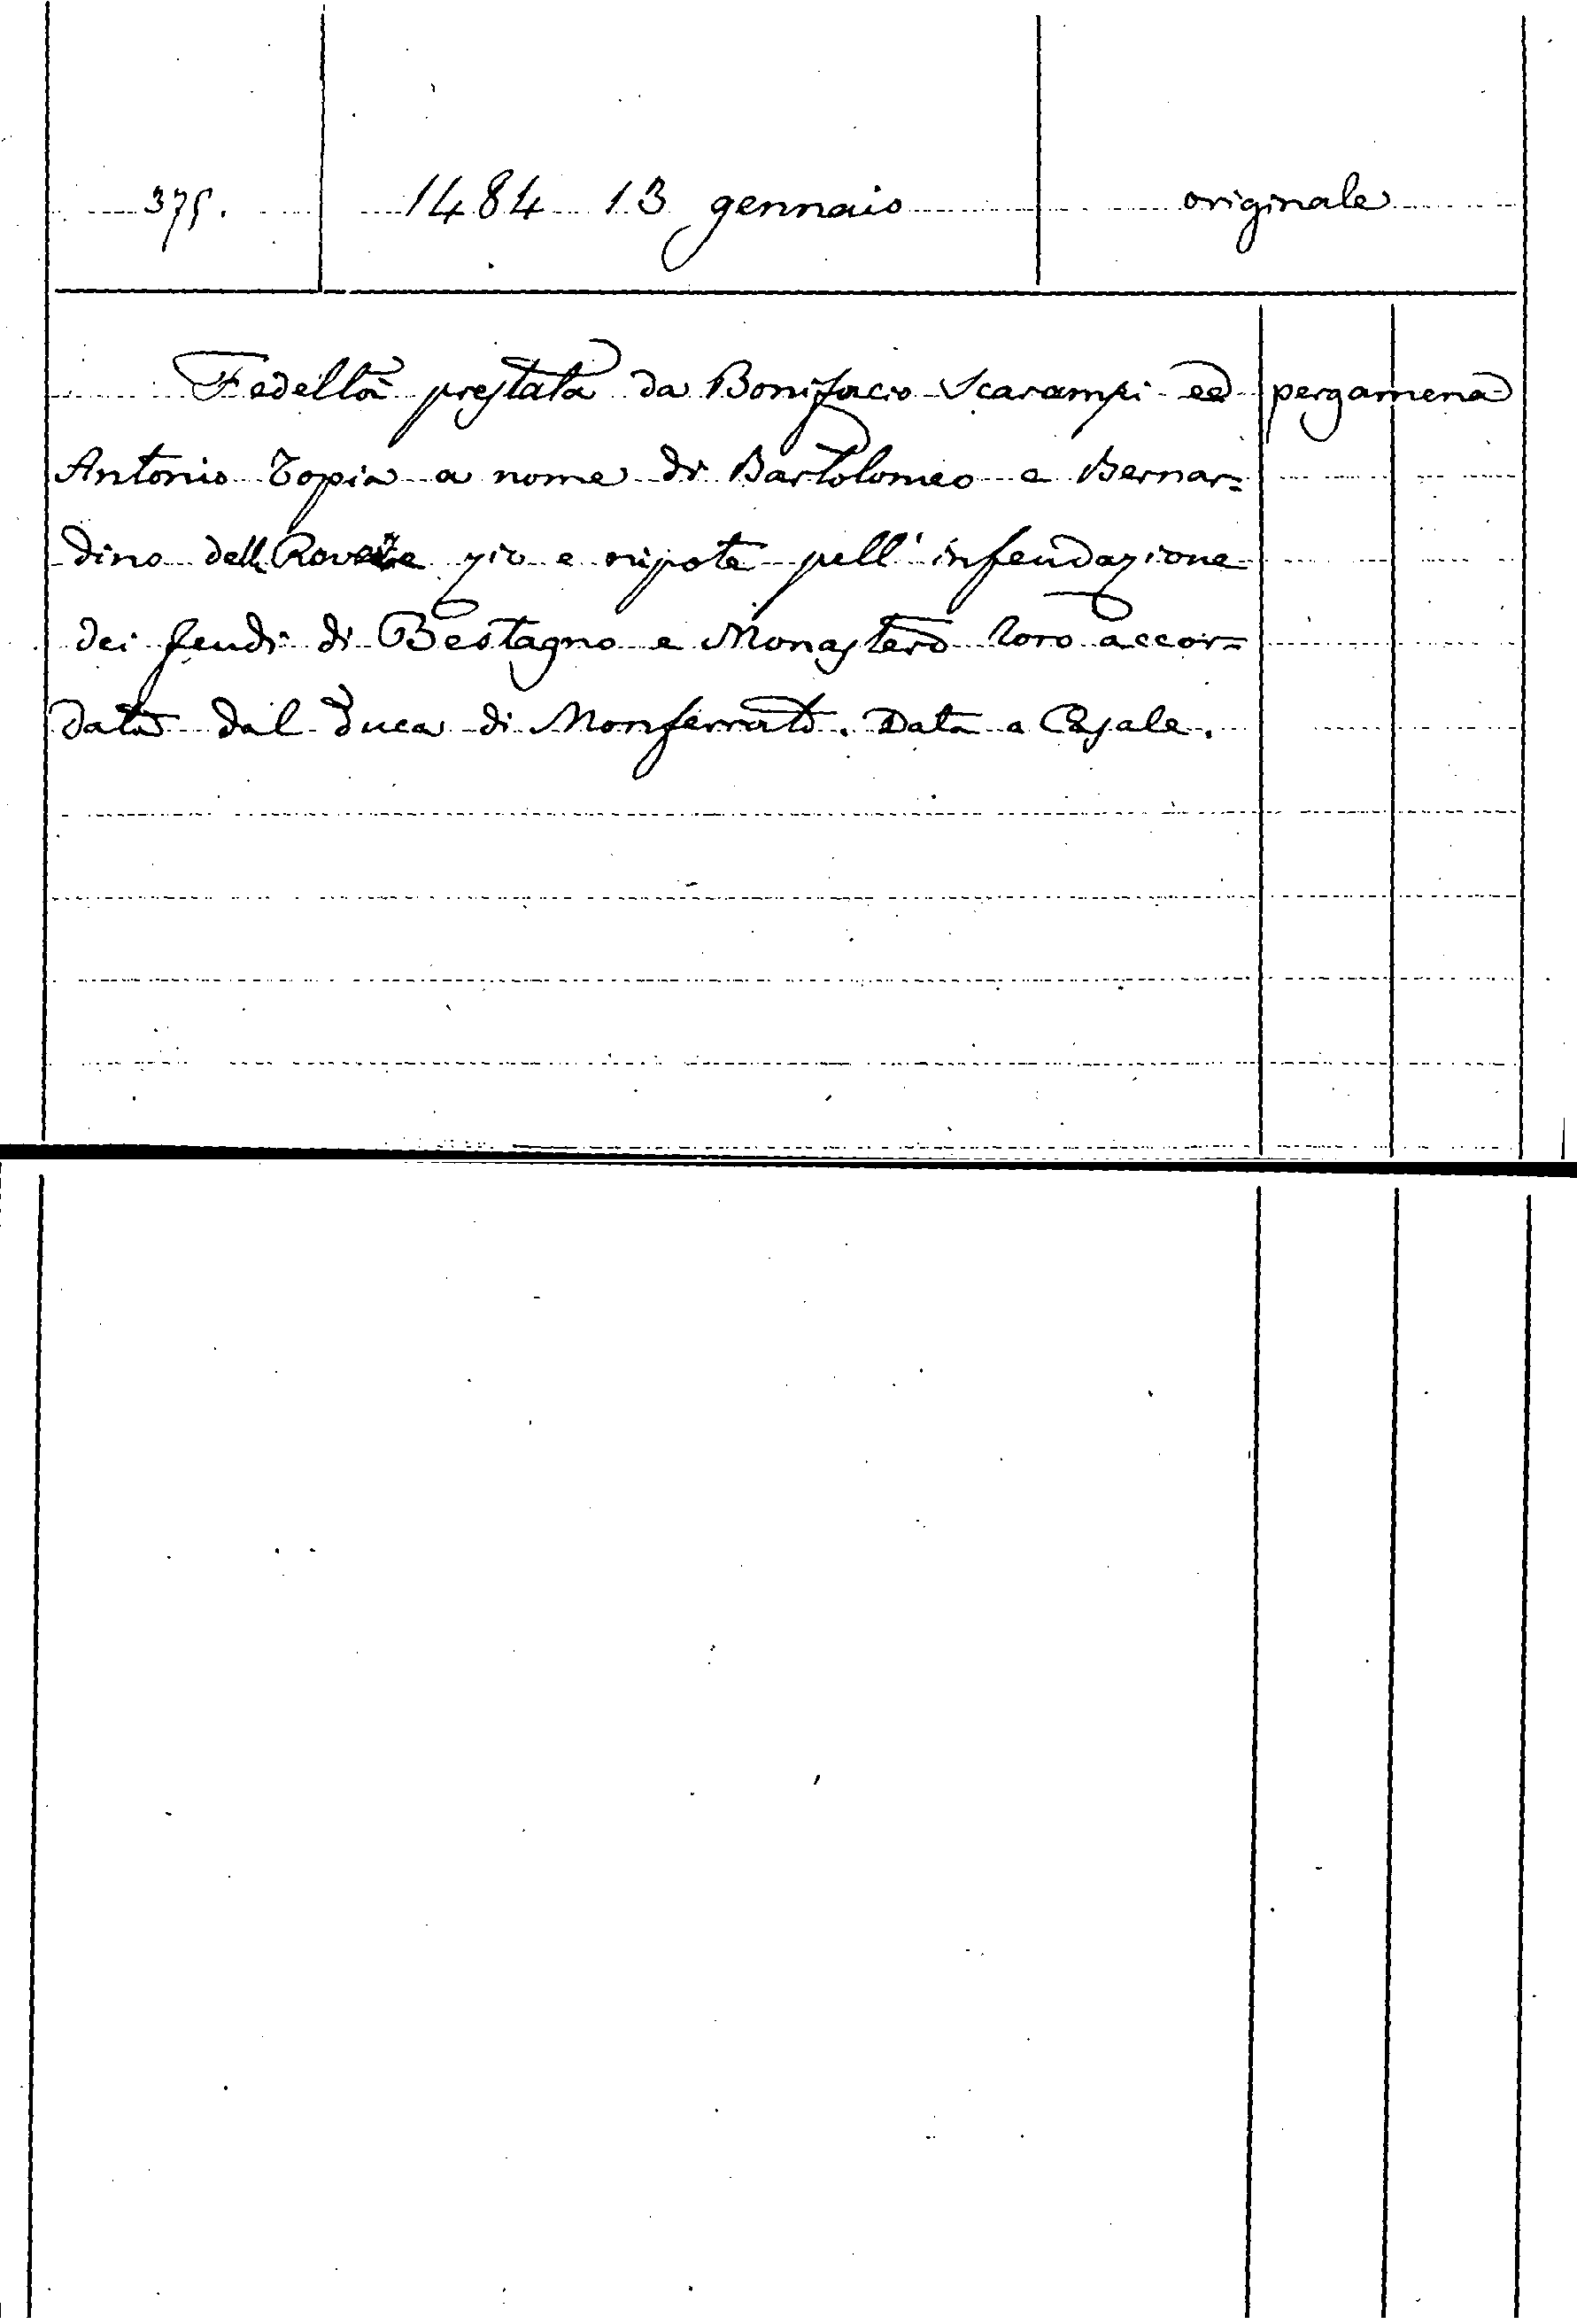 375. 1484 13 gennaio originale
Fedeltà prestata da Bonifacio Scarampi ed pergamena
Antonio Topia a nome di Bartolomeo e Bernar=
dino dell Rovere zio e nipote pell' infeudazione
dei feudi di Bestagno e Monastero loro accor=
data dal Duca di Monferrato. Data a Casale.